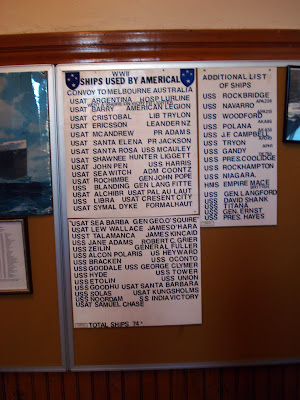 WWII
SHIPS USED BY AMERICAL
CONVOY TO MELBOURNE AUSTRALIA
USAT ARGENTINA HOSP. LURLINE
USAT BARRY AMERICAN LEGION
USAT CRISTOBAL LIB TRYLON
USAT ERICSSON LEANDER NZ
USAT MCANDREW PR ADAMS
USAT SANTA ELENA PR JACKSON
USAT SANTA ROSA USS MCAULEY
USAT SHAWNEE HUNTER LIGGETT
USAT JOHN PEN USS HARRIS
USAT SEA WITCH ADM COONTZ
USAT ROCHIMBE GEN JOHN POPE
USS BLANDING GEN LANG FITTE
USAT ALCHIBR USAT PAL AU LAUT
USS LIBRA USAT CRESENT CITY
USAT SYMAL DYKE FORMALHAUT
USAT SEA BARBA GEN GEO.O'SQUIRE
USAT LEW WALLACE JAMES O'HARA
USST TALAMANCA JAMES KINCAID
USS JANE ADAMS ROBERT C GRIER
USS ZEILIN GENERAL FULLER
USS ALCON POLARIS US HEYWARD
USS BRACKEN USS OCONTO
USS GOODALE USS GEORGE CLYMER
USS HYDE USS TOWER
USS ETOLIN USS UNION
USS GOODHU USAT SANTA BARBARA
USS SOLAS USAT KUNGSHOLMS
USS NOORDAM SS INDIA VICTORY
USAT SAMUEL CHASE
TOTAL SHIPS 74
ADDITIONAL LIST
OF SHIPS
USS ROCKBRIDGE
USS NAVARRO
USS WOODFORD
USS POLANA
USS J.E CAMPBELL
USS TRYON
USS GANDY
USS PRES.COOLIDGE
USS ROCKHAMPTON
USS NIAGARA
HMS EMPIRE MACE
USS GEN.LANGFORD
USS DAVID SHANK
USS TITANA
USS GEN. ERNST
USS PRES. HAYES